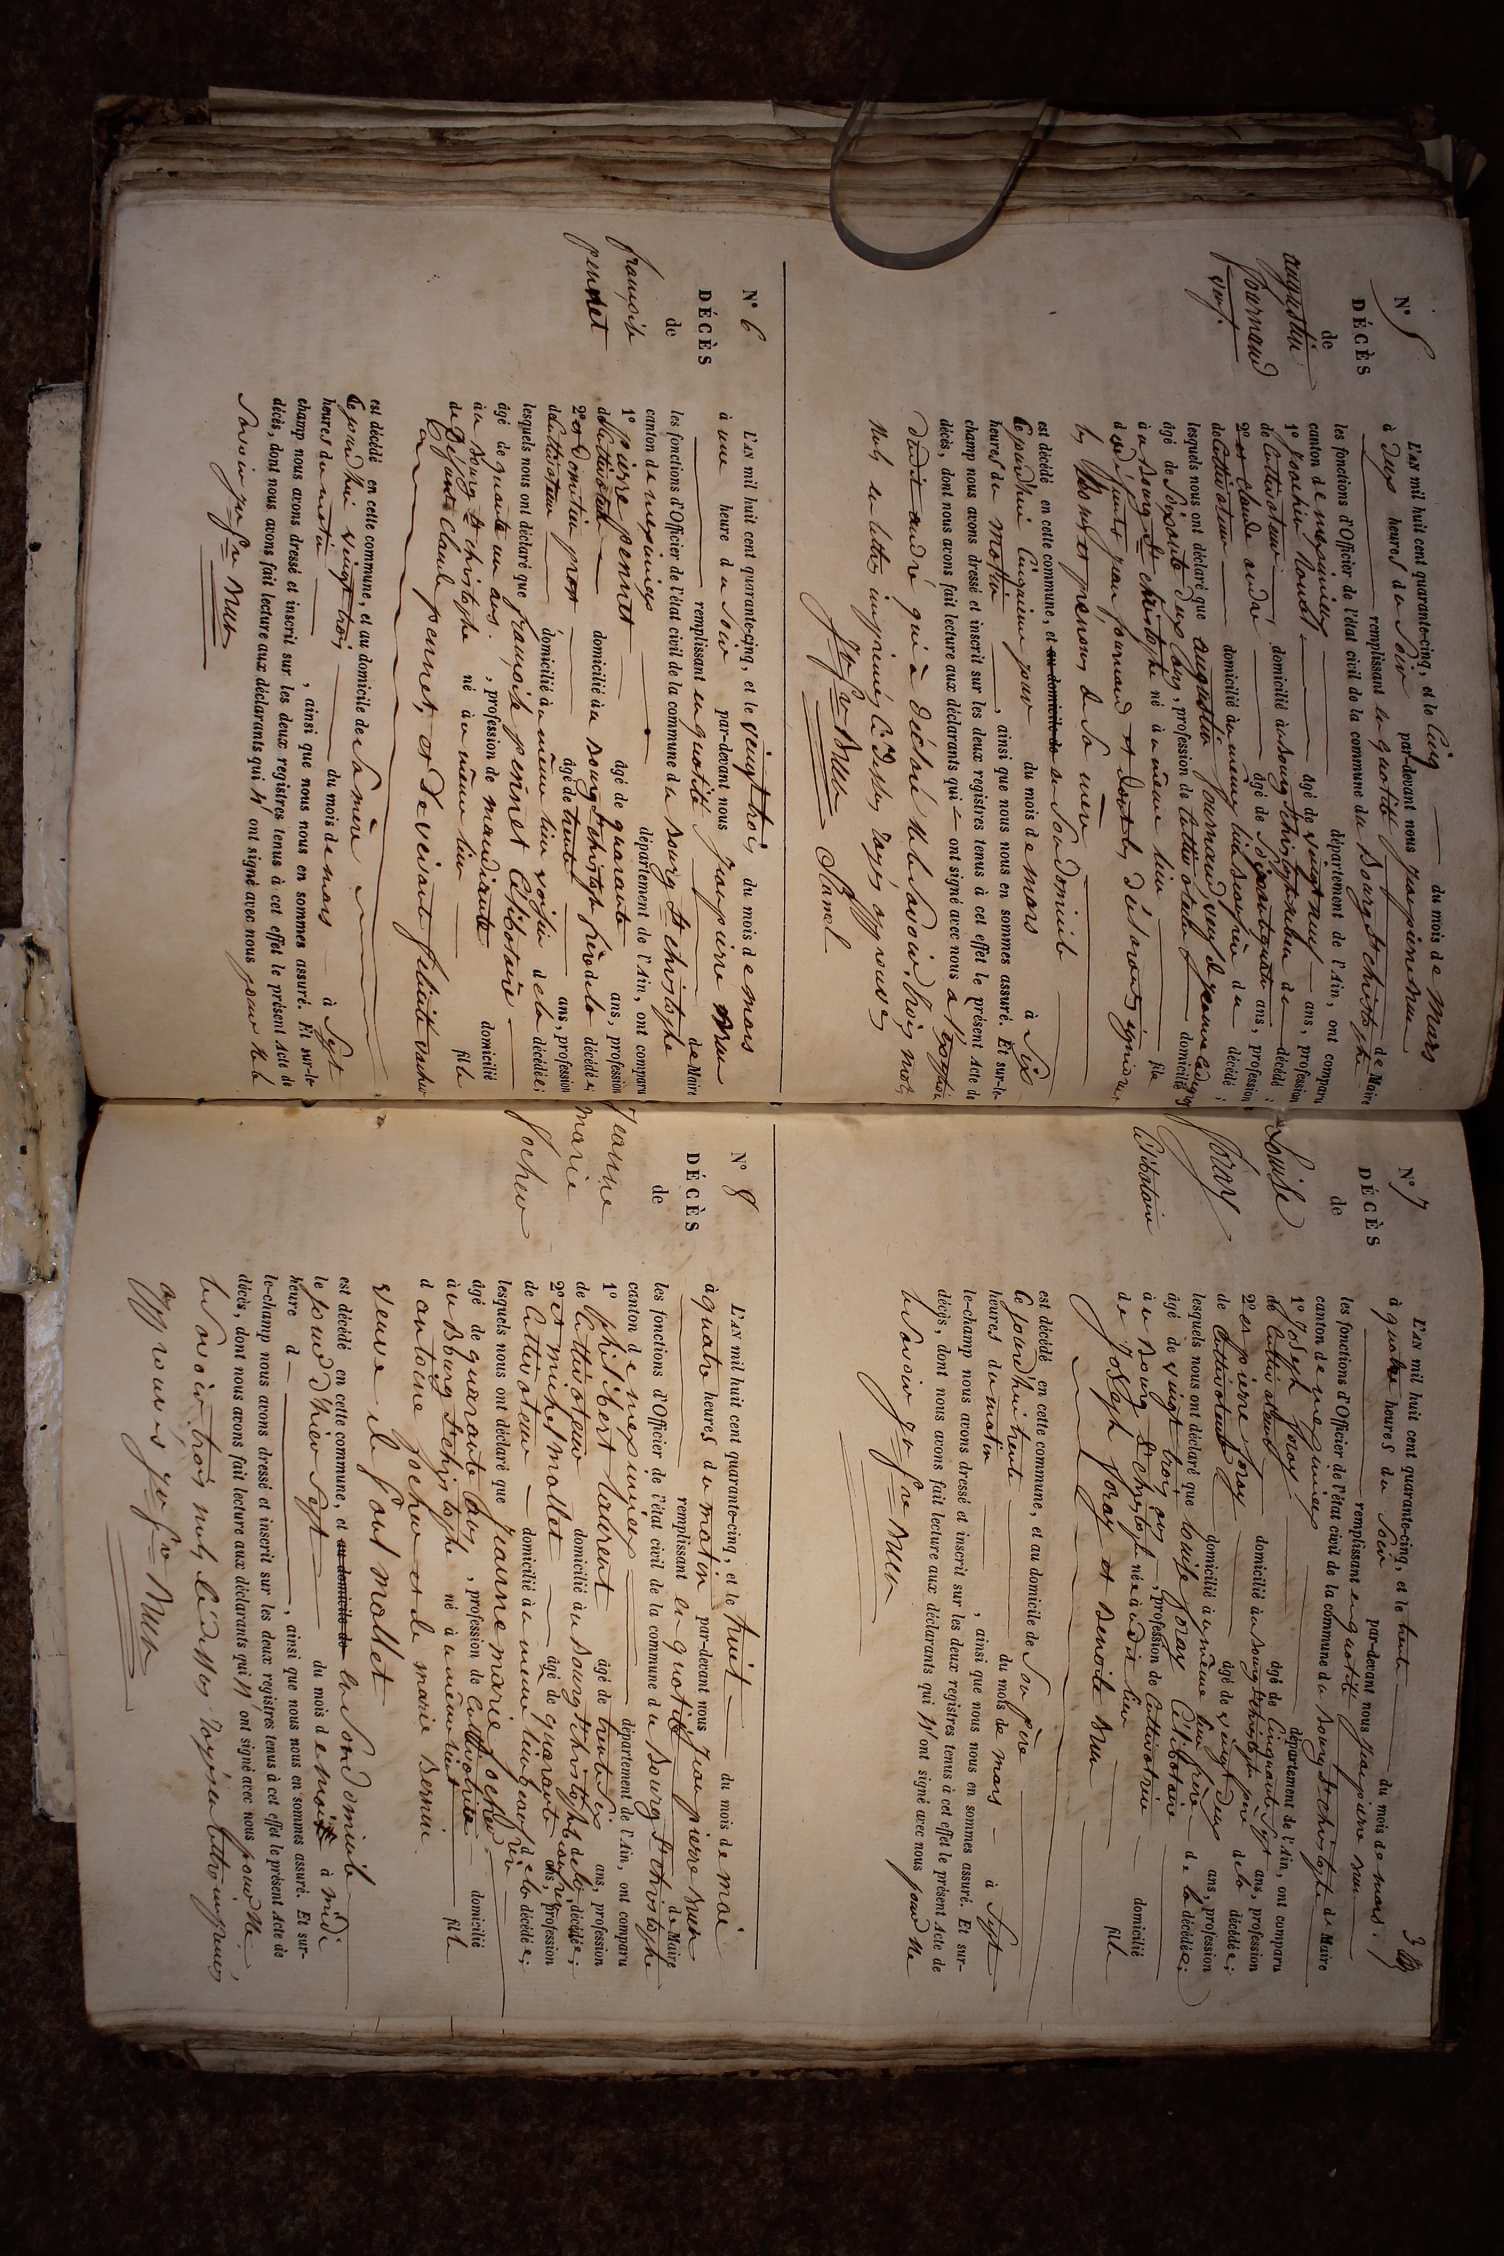 N° 5
DÉCÈS
de
augustin
fournand
veuf.
L'AN mil huit cent quarante-cinq, et le cinq du mois de mars
à deux heures du soir par-devant nous jean pierre brun
remplissant en qualité de Maire
les fonctions d'Officier de l'état civil de la commune du Bourg St christophe
canton de meximieux département de l'Ain, ont comparu
1° joachin âgé de vingt neuf ans, profession
de cultivateur domicilié au bourg St christophe neveu du décédé ;
2° et claude andré âgé de soixante quatre ans, profession
de cultivateur domicilié au même lieu beau frère du décédé ;
lesquels nous ont déclaré que augustin fournand veuf de jeanne
âgé de soixante deux ans, profession de cultivateur domicilié
au bourg St christophe né au même lieu fils
de défunts jean fournand et dont les déclarants ignorent
les noms et prénoms de sa mère
est décédé en cette commune, et au domicile de à son domicile
ce jourd'hui cinquième jour du mois de mars à six
heures du matin , ainsi que nous nous en sommes assuré. Et sur-le-
champ nous avons dressé et inscrit sur les deux registres tenus à cet effet le présent Acte de
décès, dont nous avons fait lecture aux déclarants qui ont signé avec nous
dudit andré qui a déclaré ne le savoir. trois mots
nuls en lettres imprimés ci dessus rayés approuvés
N° 6
DÉCÈS
de
françoise
pennet
L'AN mil huit cent quarante-cinq, et le vingt trois du mois de mars
à une heure du soir par-devant nous jean pierre brun
remplissant en qualité de Maire
les fonctions d'Officier de l'état civil de la commune du Bourg St christophe
canton de meximieux département de l'Ain, ont comparu
1° pierre pennet âgé de quarante ans, profession
de cultivateur domicilié au bourg St christophe frère de la décédée ;
2° et domitien âgé de trente ans, profession
de cultivateur domicilié au même lieu voisin de la décédée ;
lesquels nous ont déclaré que françoise pennet célibataire
âgé de quarante un ans. , profession de mandiante domicilié
au bourg St christophe né au même lieu fille
de défunt claude pennet, et de vivant
est décédé en cette commune, et au domicile de sa mère
ce jourd'hui vingt trois du mois de mars à sept
heures du matin , ainsi que nous nous en sommes assuré. Et sur-le-
champ nous avons dressé et inscrit sur les deux registres tenus à cet effet le présent Acte de
décès, dont nous avons fait lecture aux déclarants qui n'ont signé avec nous pour ne le
savoir
N° 7
DÉCÈS
de
Louise
foray
célibataire
L'AN mil huit cent quarante-cinq, et le trente du mois de mars.
à quatre heures du soir par-devant nous jean pierre brun
remplissant en qualité de Maire
les fonctions d'Officier de l'état civil de la commune du Bourg St christophe
canton de meximieux département de l'Ain, ont comparu
1° joseph foray âgé de cinquante sept ans, profession
de cultivateur domicilié au bourg St christophe père de la décédée ;
2° et pierre foray âgé de vingt deux ans, profession
de cultivateur domicilié au même lieu frère de la décédée ;
lesquels nous ont déclaré que louise foray célibataire
âgé de vingt trois ans , profession de cultivatrice domicilié
au bourg St christophe née audit lieu fille
de joseph foray et benoite brun
est décédé en cette commune, et au domicile de son père
ce jourd'hui trente du mois de mars à sept
heures du matin , ainsi que nous nous en sommes assuré. Et sur-
le-champ nous avons dressé et inscrit sur les deux registres tenus à cet effet le présent Acte de
décès, dont nous avons fait lecture aux déclarants qui n'ont signé avec nous pour ne
le savoir
N° 8
DÉCÈS
de
jeanne
marie
jocheur
L'AN mil huit cent quarante-cinq, et le huit du mois de mai
à quatre heures du matin par-devant nous jean pierre brun
remplissant en qualité de Maire
les fonctions d'Officier de l'état civil de la commune du Bourg St christophe
canton de meximieux département de l'Ain, ont comparu
1° philibert laurent âgé de trente six ans, profession
de cultivateur domicilié au bourg St christophe de la décédée ;
2° et michel mollet âgé de quarante ans, profession
de cultivateur domicilié au même lieu beau frère de la décédée ;
lesquels nous ont déclaré que jeanne marie jocheur
âgé de quarante , profession de cultivatrice domicilié
au bourg St christophe né au même lieu fille
d antoine jocheur et de marie bernin
veuve de mollet
est décédé en cette commune, et au domicile de en son domicile
le jour d'hier sept du mois de mai à midi
heure d , ainsi que nous nous en sommes assuré. Et sur-
le-champ nous avons dressé et inscrit sur les deux registres tenus à cet effet le présent Acte de
décès, dont nous avons fait lecture aux déclarants qui n'ont signé avec nous pour ne
le savoir, trois nuls ci dessus rayés en lettres imprimés
approuvés